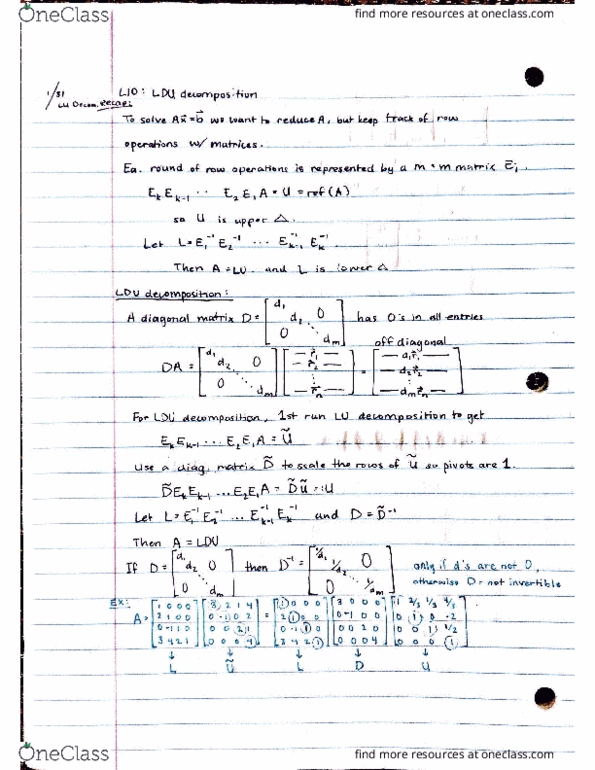 OneClass
find more resources at oneclass.com
1/31
L10: LDU decomposition
LU Decom. Recap:
To solve Ax⃗=b⃗ we want to reduce A, but keep track of row
operations w/ matrices.
Ea. round of row operations is represented by a m×m matrix E⃗i.
EkEk-1 ·· E2E1A = U = ref(A)
so U is upper △.
Let L=E1⁻¹ E2⁻¹ ... Ek-1⁻¹ Ek⁻¹.
Then A=LU. and L is lower △
LDU decomposition:
A diagonal matrix D= [d1 d2 0 0 ⋱ dm] has 0's in all entries
off diagonal
DA = [d1 d2 0 0 ⋱ dm] [— r⃗1 — — r⃗2 — ⋮ — r⃗n —] = [— d1r⃗1 — — d2r⃗2 — ⋮ — dmr⃗n —]
For LDU decomposition, 1st run LU decomposition to get
EkEk-1 ... E2E1A = Ũ
Use a diag. matrix D̃ to scale the rows of Ũ so pivots are 1.
D̃EkEk-1 ... E2E1A = D̃Ũ =: U
Let L = E1⁻¹ E2⁻¹ ... Ek-1⁻¹ Ek⁻¹ and D = D̃⁻¹
Then A = LDU
If D= [d1 d2 0 0 ⋱ dm] then D⁻¹ = [1/d1 1/d2 0 0 ⋱ 1/dm] only if d's are not 0,
otherwise D = not invertible
Ex:
A= [1 0 0 0 2 1 0 0 0 -1 1 0 3 4 2 1] [3 2 1 4 0 -1 0 2 0 0 2 1 0 0 0 4] = [1 0 0 0 2 1 0 0 0 -1 1 0 3 4 2 1] [3 0 0 0 0 -1 0 0 0 0 2 0 0 0 0 4] [1 2/3 1/3 4/3 0 1 0 -2 0 0 1 1/2 0 0 0 1]
↓ ↓ ↓ ↓ ↓
L Ũ L D U
OneClass
find more resources at oneclass.com